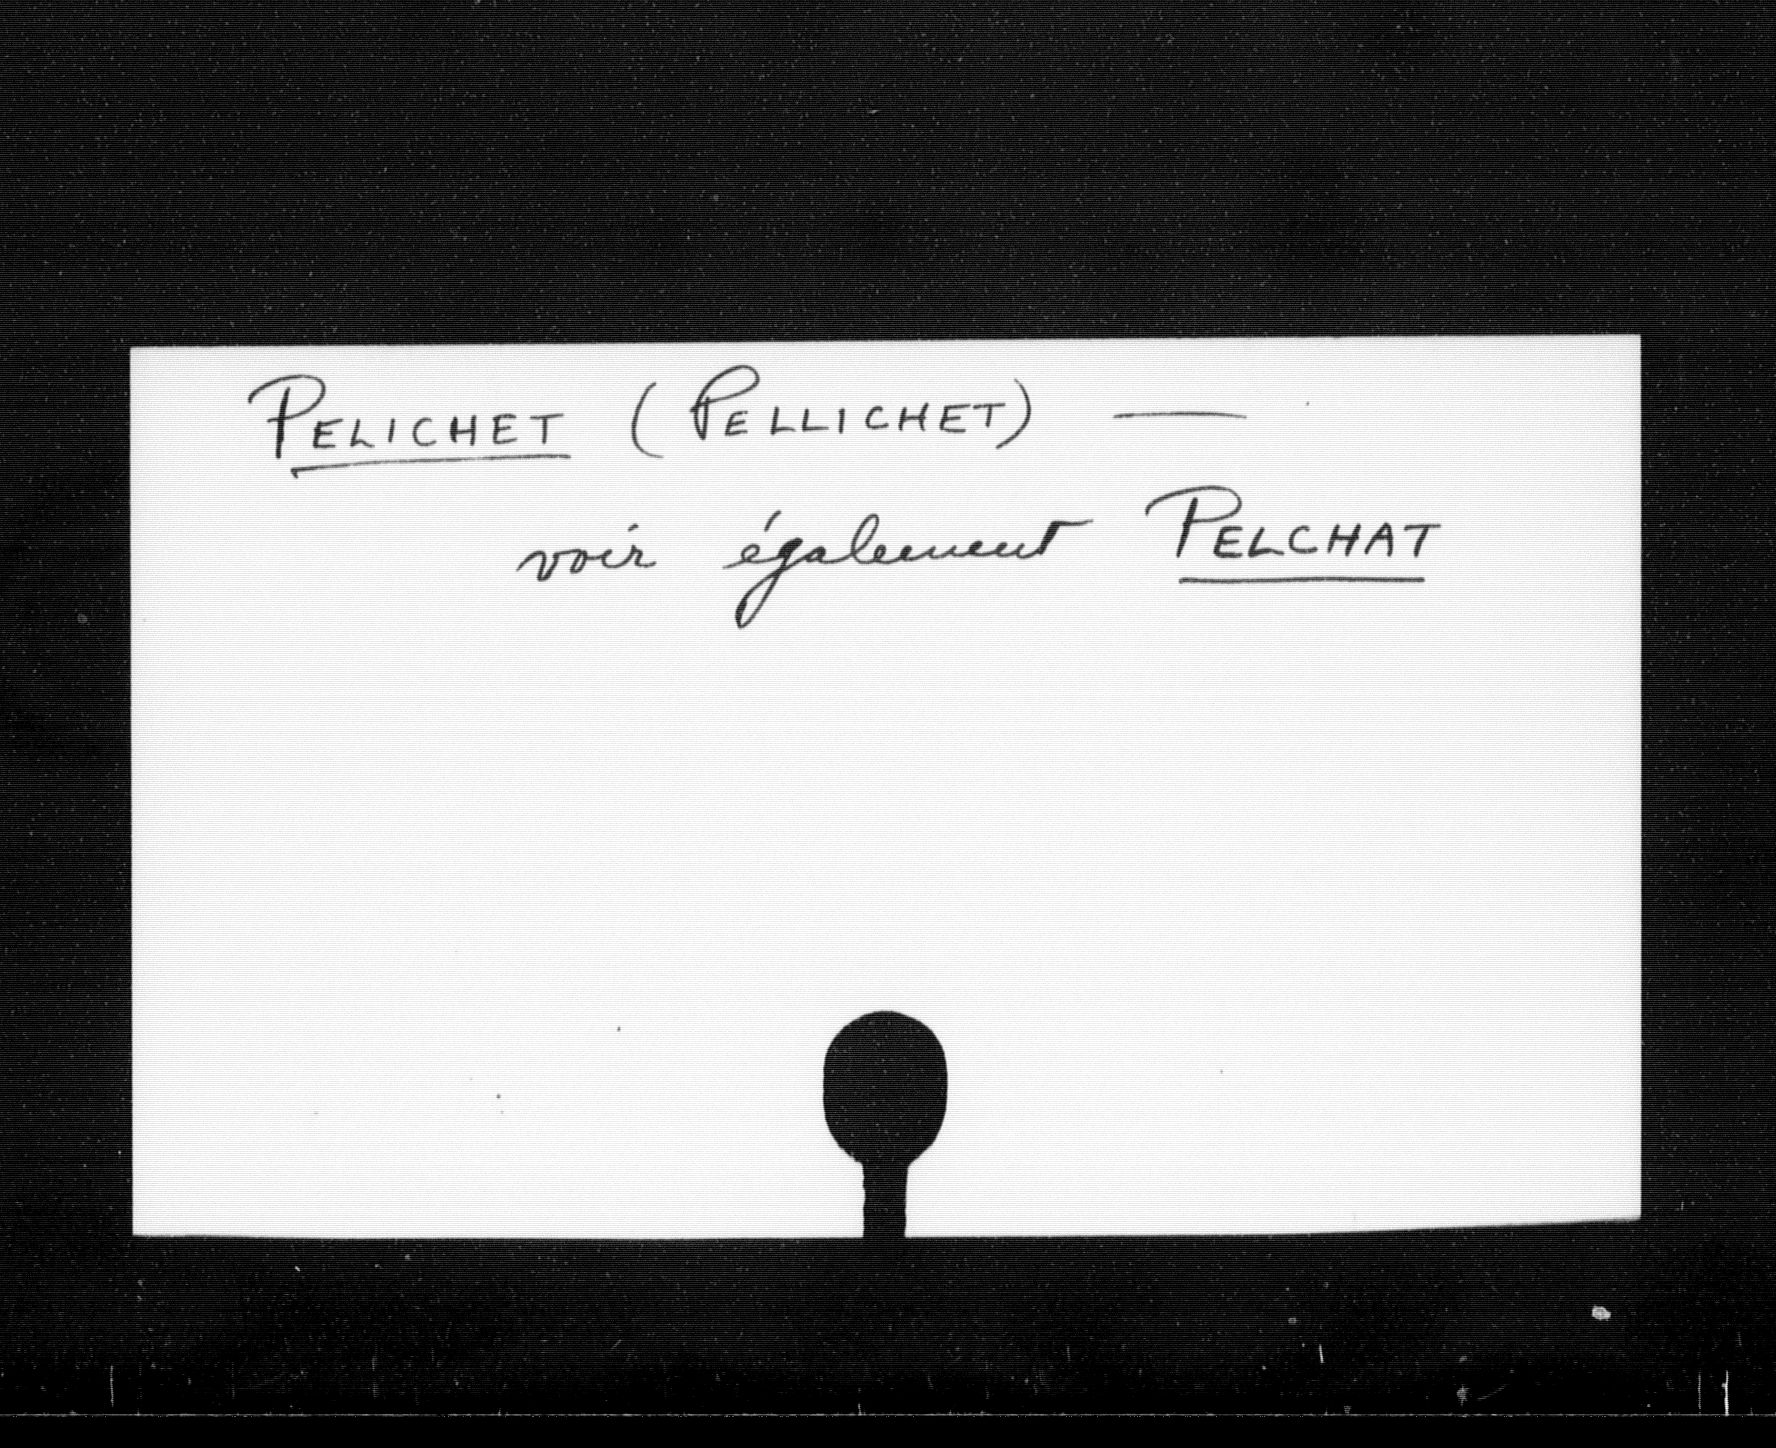 PELICHET (PELLICHET) —
voir également PELCHAT